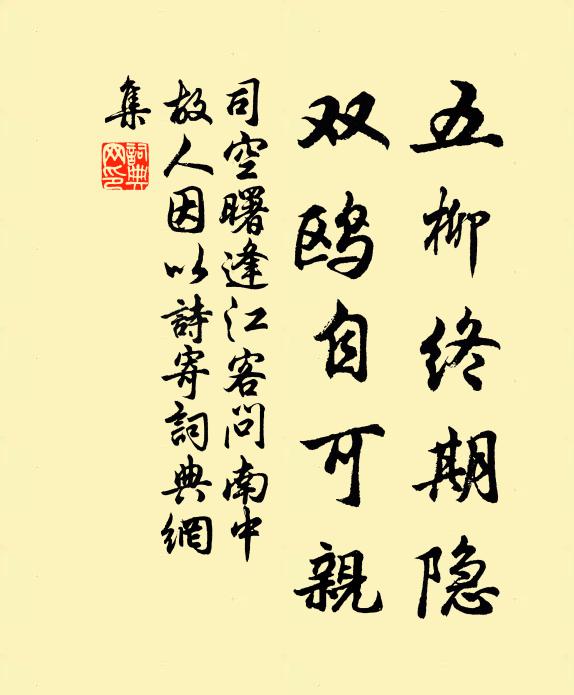 五柳终期隐
双鸥自可親
司空曙逢江客问南中
故人因以詩寄詞典網
集
詞典网印